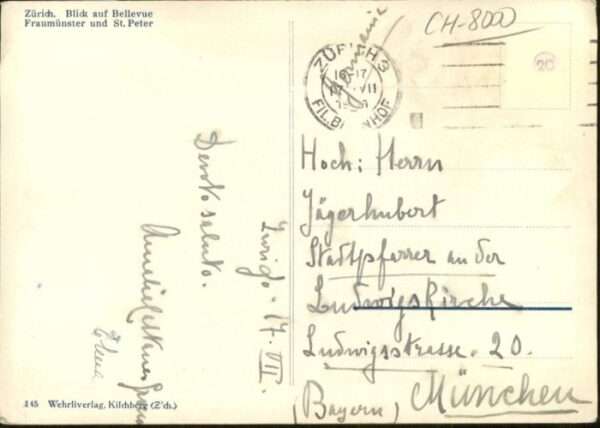 Zürich. Blick auf Bellevue
Fraumünster und St. Peter
CH-8000
ZÜRICH 3
17 VII
FIL. BAHNHOF
20
Devoto saluto.
Zurigo - 17. VII.
Elena
Hoch: Herrn
Jägerhubert
Stadtpfarrer an der
Ludwigskirche
Ludwigsstrasse. 20.
(Bayern) München
145 Wehrliverlag, Kilchberg (Z'ch.)